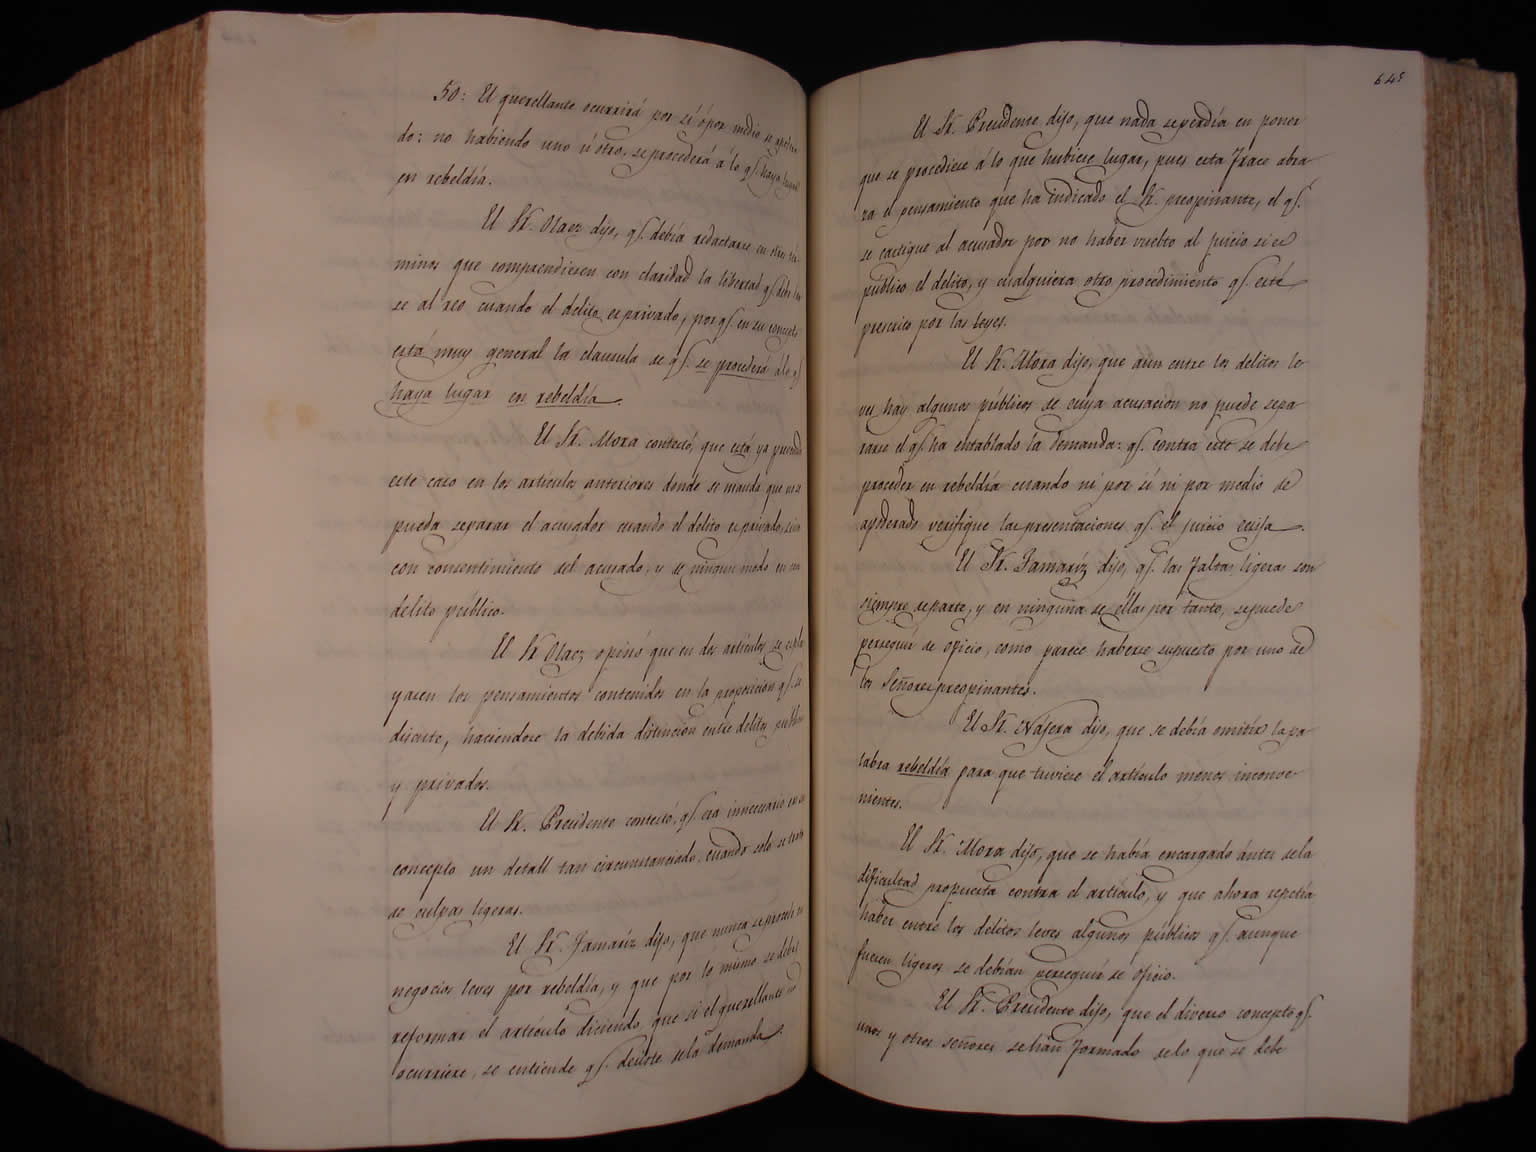 50: El querellante ocurrirá por sí ó por medio de apodera
do: no habiendo uno ú otro, se procederá á lo q.e haya lugar
en rebeldía.
El Sr. Olaez dijo, q.e debía redactarse en otros tér-
minos que comprendiesen con claridad la libertad q.e debe
se al reo cuando el delito es privado, por q.e en su concepto
está muy general la clausula de q.e se procederá á lo q.e
haya lugar en rebeldía.
El Sr. Mora contestó, que está ya prevenido
este caso en los artículos anteriores donde se manda que no se
pueda separar el acusador cuando el delito es privado, sino
con consentimiento del acusado, y de ningun modo en un
delito público.
El Sr. Olaez opinó que en dos artículos se expla
yasen los pensamientos contenidos en la proposicion q.e se
discute, haciendose la debida distincion entre delitos publicos
y privados.
El Sr. Presidente contestó, q.e era innecesario en su
concepto un detall tan circunstanciado, cuando solo se trata
de culpas ligeras.
El Sr. Jamaríz dijo, que nunca se procede en
negocios leves por rebeldía, y que por lo mismo se debe
reformar el artículo diciendo, que si el querellante no
ocurriere, se entiende q.e desiste de la demanda.
645
El Sr. Presidente dijo, que nada se perdía en poner
que se procediese á lo que hubiese lugar, pues esta frace abra
za el pensamiento que ha indicado el Sr. preopinante, el q.e
se castigue al acusador por no haber vuelto al juicio si es
público el delito, y cualquiera otro procedimiento q.e esté
prescrito por las leyes.
El Sr. Mora dijo, que aun entre los delitos le
ves hay algunos públicos de cuya acusacion no puede sepa
rarse el q.e ha entablado la demanda: q.e contra este se debe
proceder en rebeldía cuando ni por sí ni por medio de
apoderado verifique las presentaciones q.e el juicio exija.
El Sr. Jamaríz dijo, q.e las faltas ligeras son
siempre de parte, y en ninguna de ellas por tanto, se puede
perseguir de oficio, como parece haberse supuesto por uno de
los Señores preopinantes.
El Sr. Nájera dijo, que se debía omitir la pa
labra rebeldía para que tuviese el artículo menos inconve-
nientes.
El Sr. Mora dijo, que se había encargado ántes de la
dificultad propuesta contra el artículo, y que ahora repetía
haber entre los delitos leves algunos públicos q.e aunque
fuesen ligeros se debían perseguir de oficio.
El Sr. Presidente dijo, que el diverso concepto q.e
unos y otros señores se han formado de lo que se debe